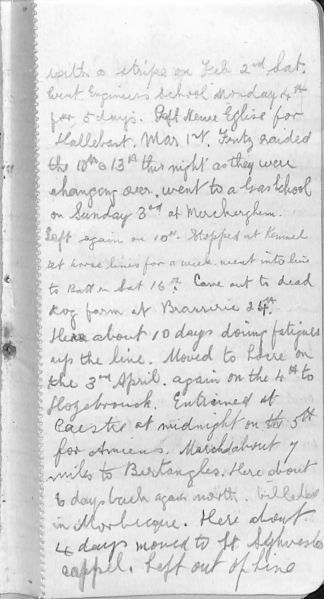 with a stripe on Feb 2nd Sat.
Went Engineers School Monday 4th
for 5 days. Left Neuve Eglise for
Hallebast. Mar 1st. Fritz raided
the 10th & 13th this night as they were
changing over. went to a Gas School
on Sunday 3rd at
Left again on 10th. Stopped at Kemmel
at horse lines for a week. went into line
to Batt on Sat 16th. Came out to dead
dog farm at Brasserie 24th.
Here about 10 days doing fatigues
up the line. Moved to Locre on
the 3rd April. again on the 4th to
Hazebrouck. Entrained at
Caestre at midnight on the 5th
for Amiens. Marched about 7
miles to Bertangles. Here about
6 days back again north. billeted
in Morbecque. Here about
4 days moved to St Sylvestre
cappel. Left out of line